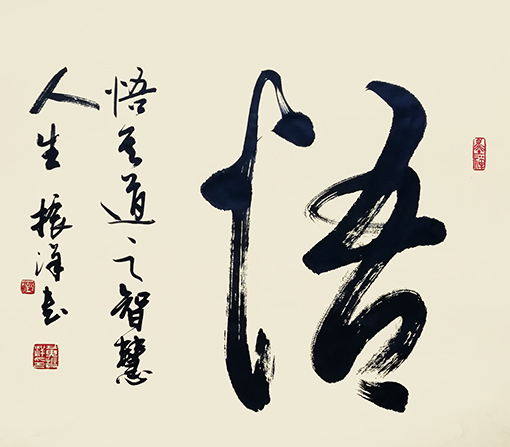 悟
悟其道之智慧
人生 振洋书